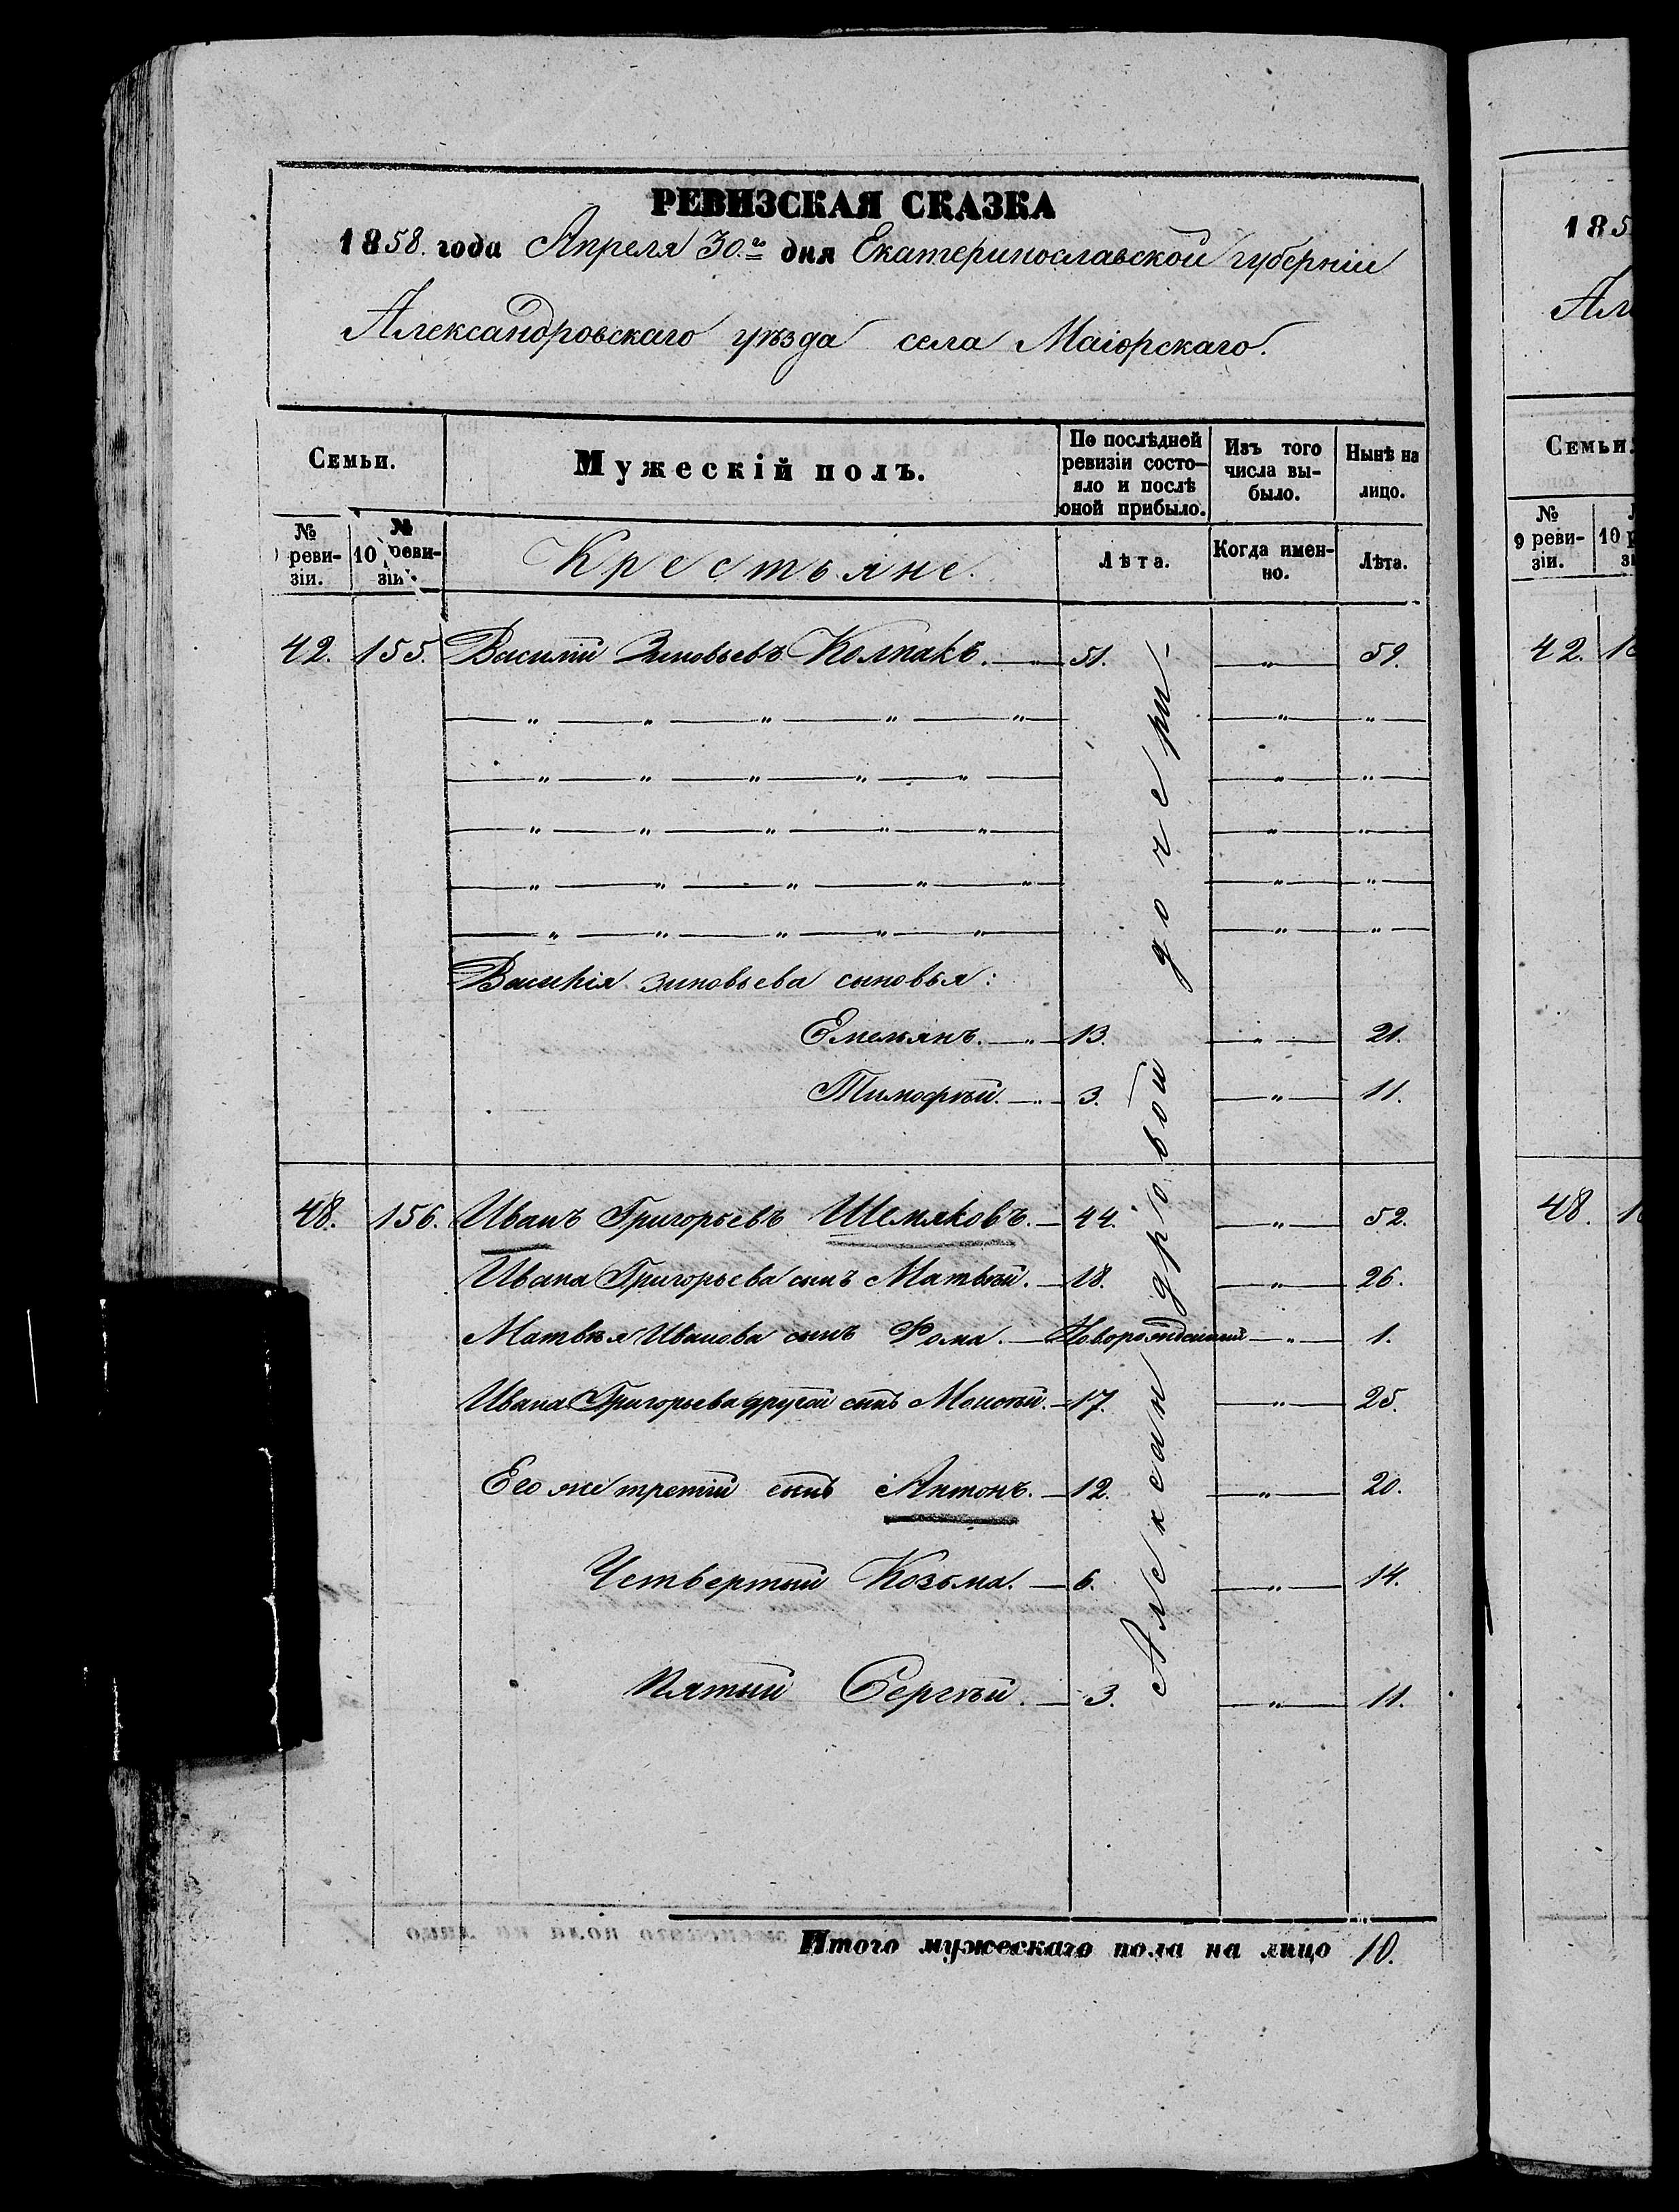 РЕВИЗСКАЯ СКАЗКА
1858. года Апреля 30.го дня Екатеринославской губерніи
Александровскаго уѣзда села Маіорскаго.
Семьи.
Мужескій полъ.
По послѣдней ревизіи состо-
яло и послѣ
оной прибыло.
Изъ того
числа вы-
было.
Нынѣ на
лицо.
№
реви-
зіи.
№
10 реви-
зіи.
Крестьяне.
Лѣта.
Когда имен-
но.
Лѣта.
42. 155. Василій Зиновьевъ Колпакъ. — " — 51. — " — 59.
— " — " — " — " — " — — " — " —
— " — " — " — " — " — — " — " —
— " — " — " — " — " — — " — " —
— " — " — " — " — " — — " — " —
— " — " — " — " — " — — " — " —
Василія Зиновьева сыновья:
Емельянъ. — " — 13. — " — 21.
Тимофѣй. — " — 3. — " — 11.
48. 156. Иванъ Григорьевъ Шемяковъ. — 44. — " — 52.
Ивана Григорьева сынъ Матвѣй. — 18. — " — 26.
Матвѣя Иванова сынъ Фома. — Новорожденный — " — 1.
Ивана Григорьева другой сынъ Моисѣй. — 17. — " — 25.
Его же третій сынъ Антонъ. — 12. — " — 20.
Четвертый Козьма. — 6. — " — 14.
Пятый Сергѣй. — 3. — " — 11.
Александровой дочери -
Итого мужескаго пола на лицо 10.
185
Ал
Семьи.
№
9 реви-
зіи.
10
42. 1
48. 1